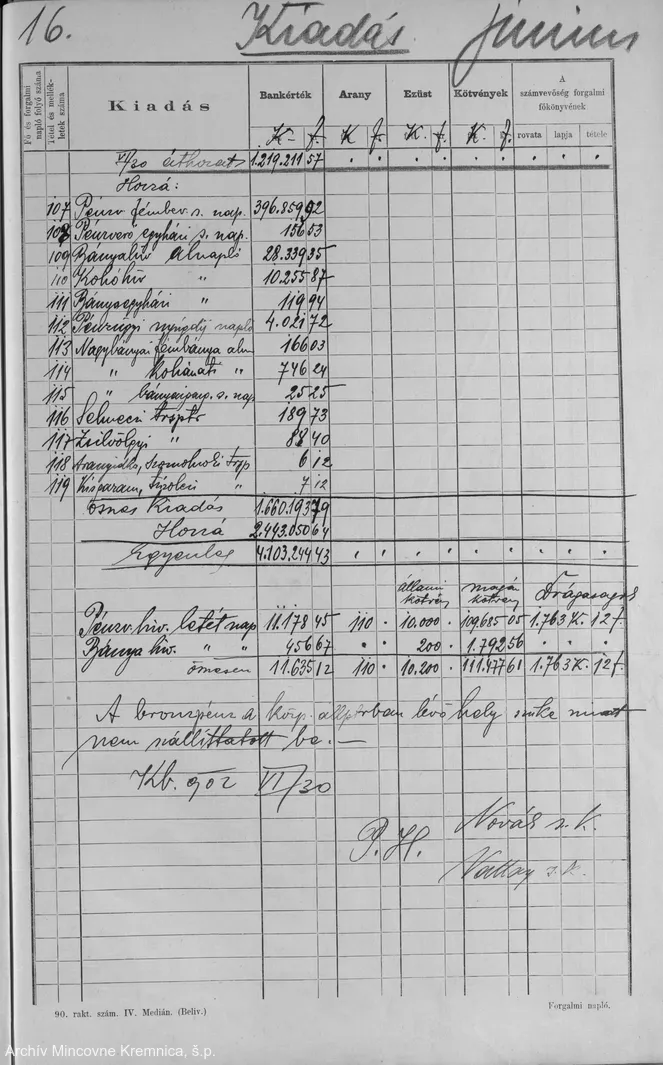 16. Kiadás június
Fő és forgalmi napló folyó száma
Tétel és mellékletek száma
Kiadás
Bankérték Arany Ezüst Kötvények
A számvevőség forgalmi főkönyvének
K f. K f. K. f. K. f. rovata lapja tétele
VI/30 áthozat 1.219.211 57
Hozzá:
107 Pénzv. fémbev. s. nap. 396.859 92
108 Pénzverő egyházi s. nap. 156 53
109 Bányahiv. alnapló 28.339 35
110 Kohóhiv " 10.255 87
111 Bányaegyházi " 119 94
112 Pénzügyi nyugdíj napló 4.021 72
113 Nagybányai fémbánya aln 166 03
114 " Kohászati " 746 24
115 " s. nap 25 25
116 Selmeczi trsptr 189 73
117 Zsilvölgyi " 88 40
118 Aranyidka, Szomolnoki 6 12
119 " 7 12
Összes Kiadás 1.660.193 79
Hozzá 2.443.050 64
Egyenleg 4.103.244 43
állami kötvény magán kötvény Drágaságok
Pénzv. hiv. letét nap 11.178 45 110 10.000 109685 05 1.763 K. 12 f.
Bánya hiv. " " 456 67 200 1.792 56
összesen 11.635 12 110 10.200 111.477 61 1.763 K. 12 f.
A bronzpénz a közp. állptrban lévő hely szűke miatt
nem szállíttatott be. —
Kb. 902 VI/30
P. H.
Novák s. k.
s. k.
90. rakt. szám. IV. Medián. (Beliv.)
Forgalmi napló.
Archív Mincovne Kremnica, š.p.